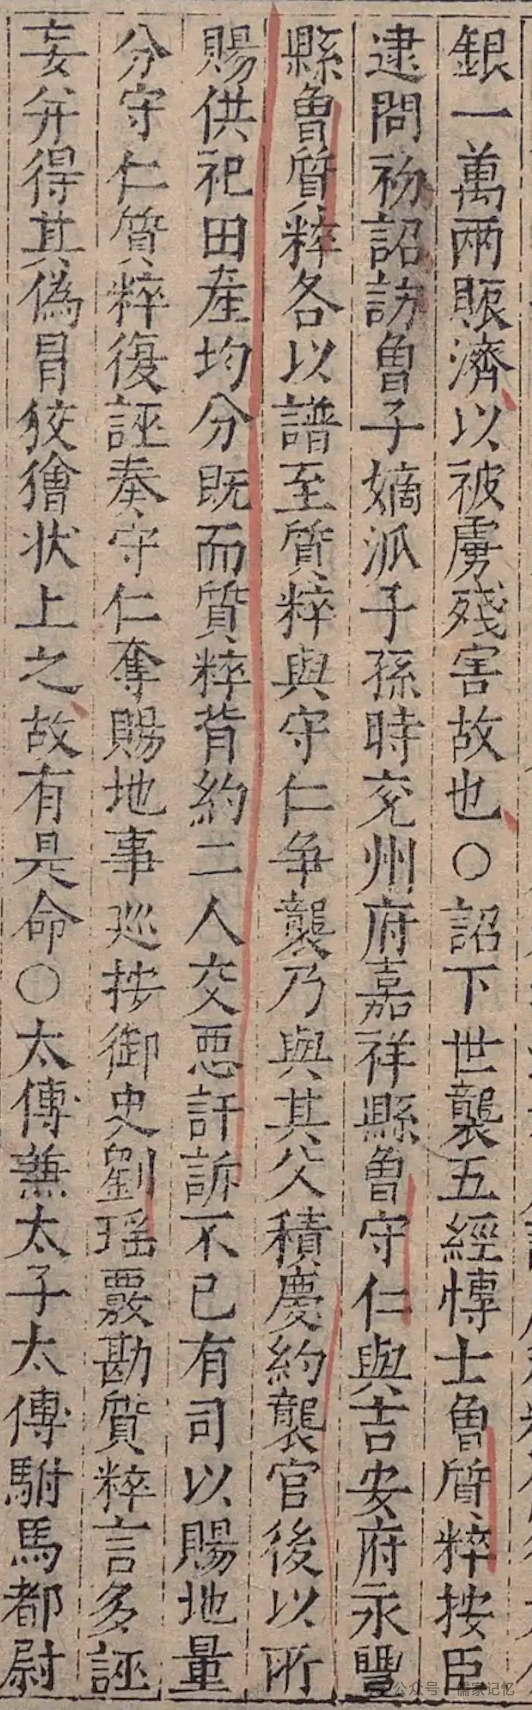 銀一萬兩賑濟以被虜殘害故也○詔下世襲五經愽士曾質粹按臣
逮問初詔訪曾子嫡派子孫時兗州府嘉祥縣曾守仁與吉安府永豐
縣曾質粹各以譜至質粹與守仁争襲乃與其父積慶約襲官後以所
賜供祀田產均分既而質粹背約二人交惡訐訴不已有司以賜地量
分守仁質粹復誣奏守仁奪賜地事巡按御史劉瑶覈勘質粹言多誣
妄并得其偽冒狡獪状上之故有是命○太傅兼太子太傅駙馬都尉
公众号·儒家记忆